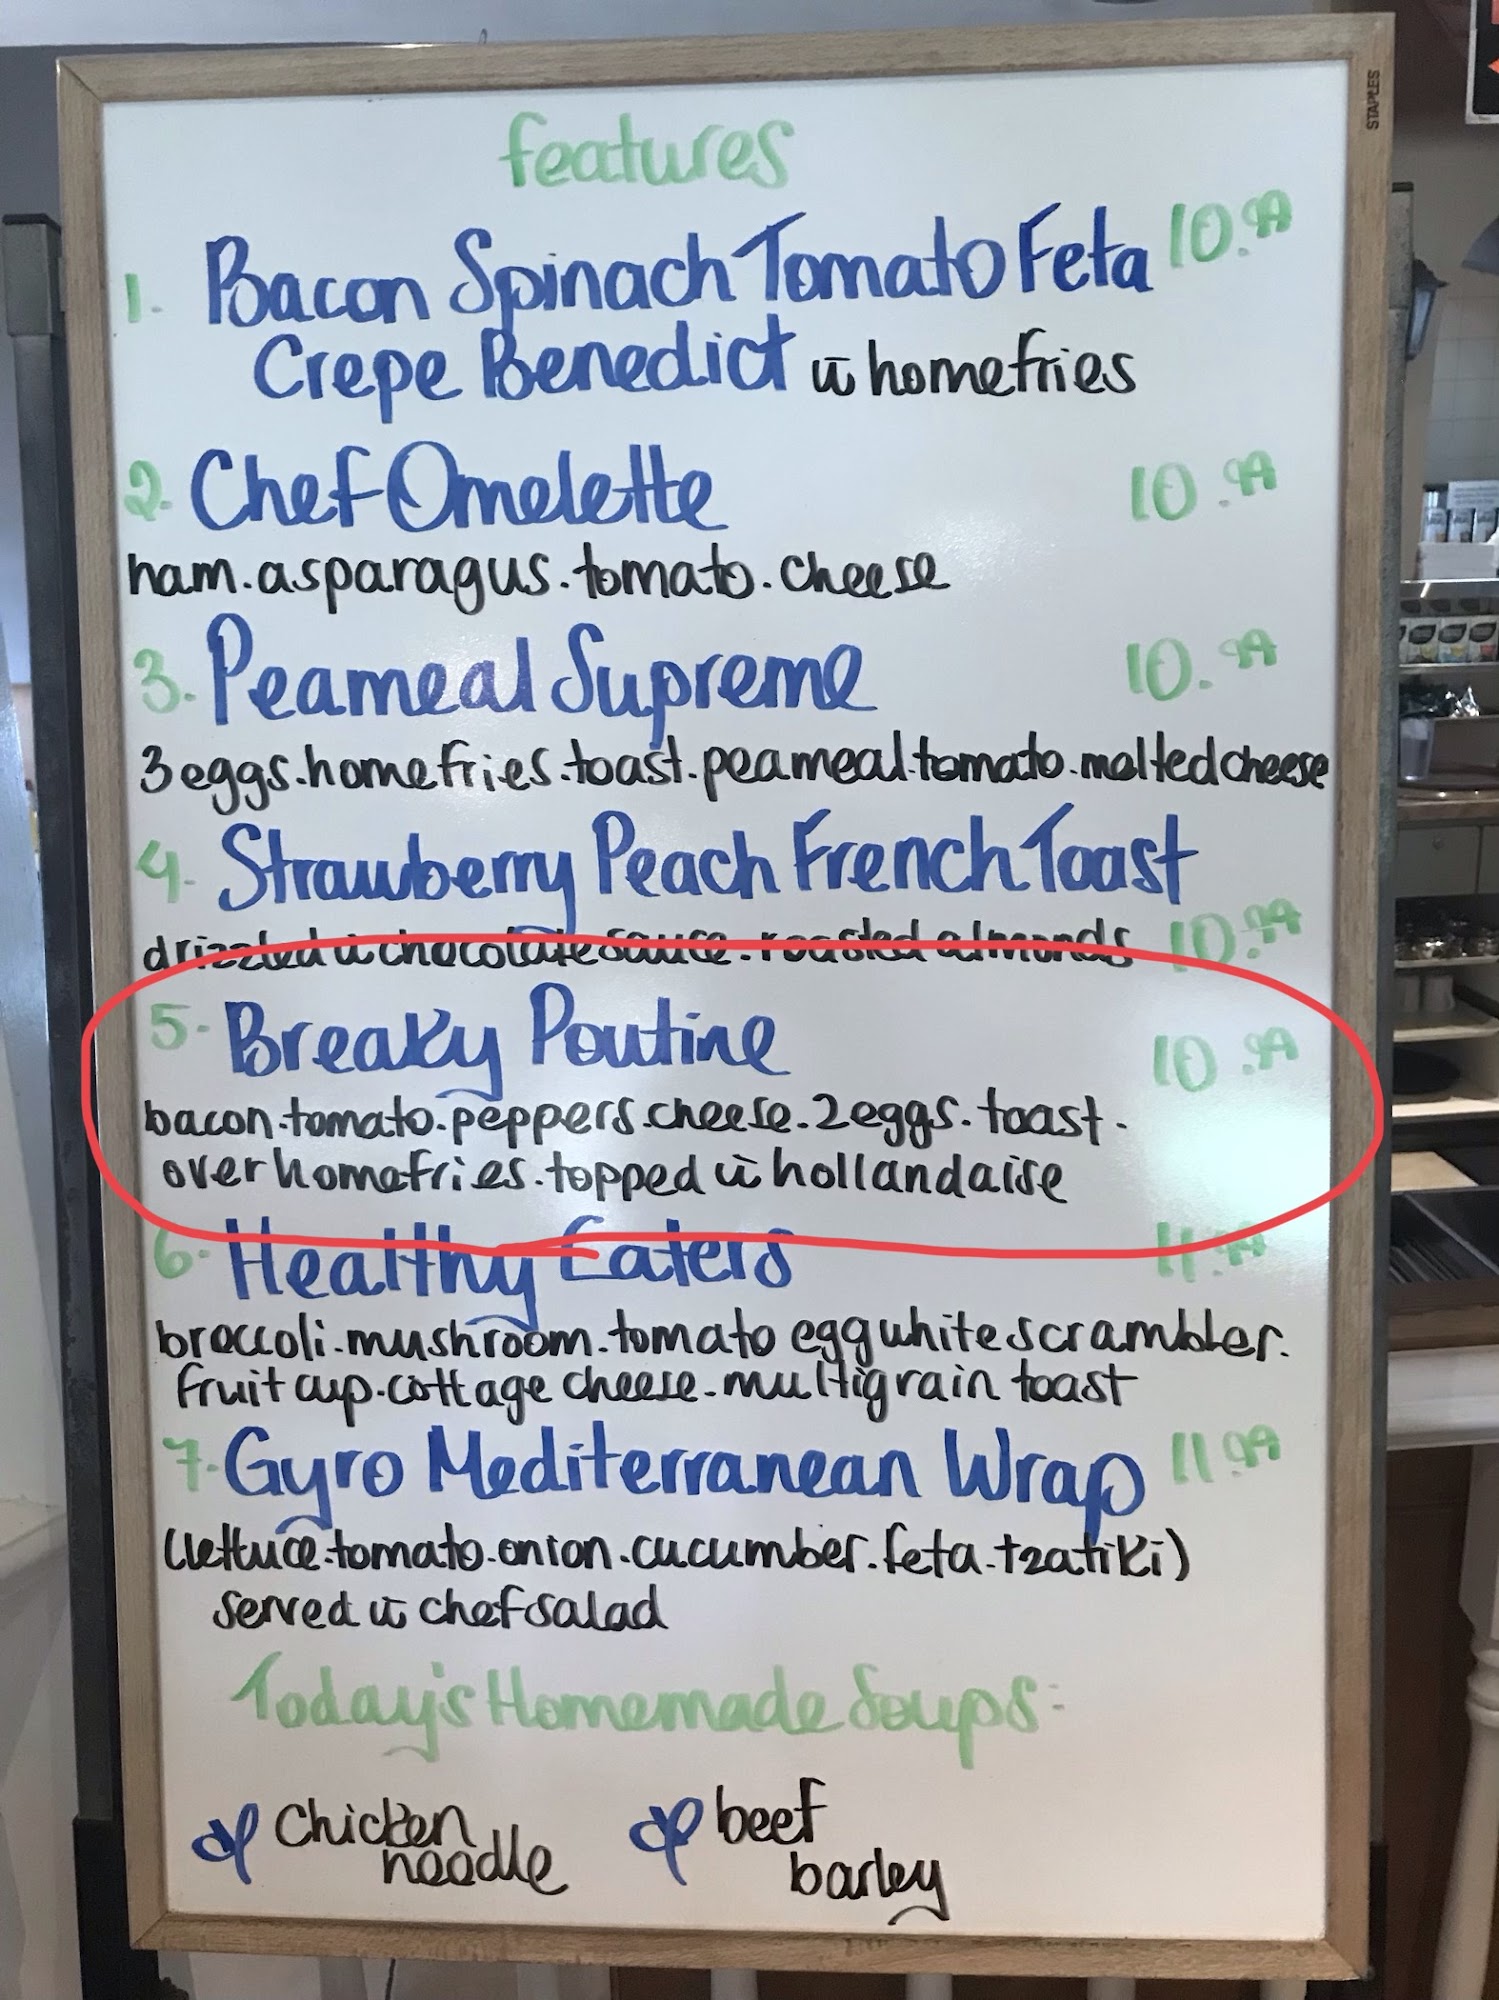 STAPLES
features
1. Bacon Spinach Tomato Feta 10.99
Crepe Benedict w homefries
2. Chef Omelette 10.99
ham.asparagus.tomato.cheese
3. Peameal Supreme 10.99
3 eggs.homefries.toast.peameal.tomato.melted cheese
4. Strawberry Peach French Toast
drizzled w chocolate sauce.roasted almonds 10.99
5. Breaky Poutine 10.99
bacon.tomato.peppers.cheese.2 eggs.toast.
over homefries.topped w hollandaise
6. Healthy Eaters 11.99
broccoli.mushroom.tomato egg white scrambler.
fruit cup.cottage cheese.multigrain toast
7. Gyro Mediterranean Wrap 11.99
(lettuce.tomato.onion.cucumber.feta.tzatiki)
served w chef salad
Today's Homemade Soups:
chicken noodle
beef barley